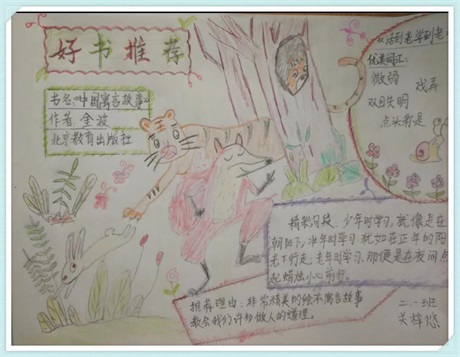 好书推荐
书名《中国寓言故事》
作者 金波
北京教育出版社
活到老学到老
优美词汇:
微弱
戏弄
双目失明
点头称是
精采闪段、少年时学习,就像是在
朝阳下,壮年时学习,犹如在正午的阳
光下行走,老年时学习,那便是在夜间点
起蜡烛小心前行。
推荐理由:非常精美的绘本寓言故事
教会我们许多做人的道理。
二.一班